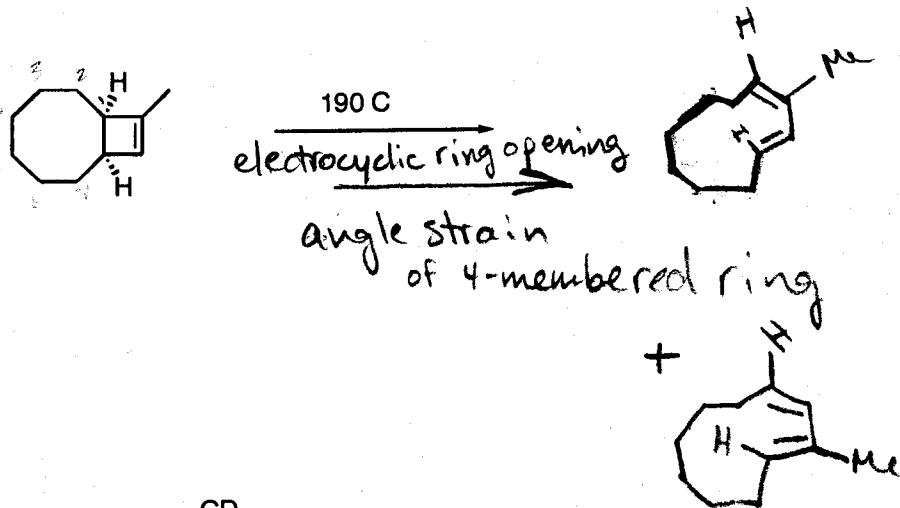 3 2 H
H
190 C
electrocyclic ring opening
angle strain
of 4-membered ring
H
Me
H
+
H
H
Me
CD